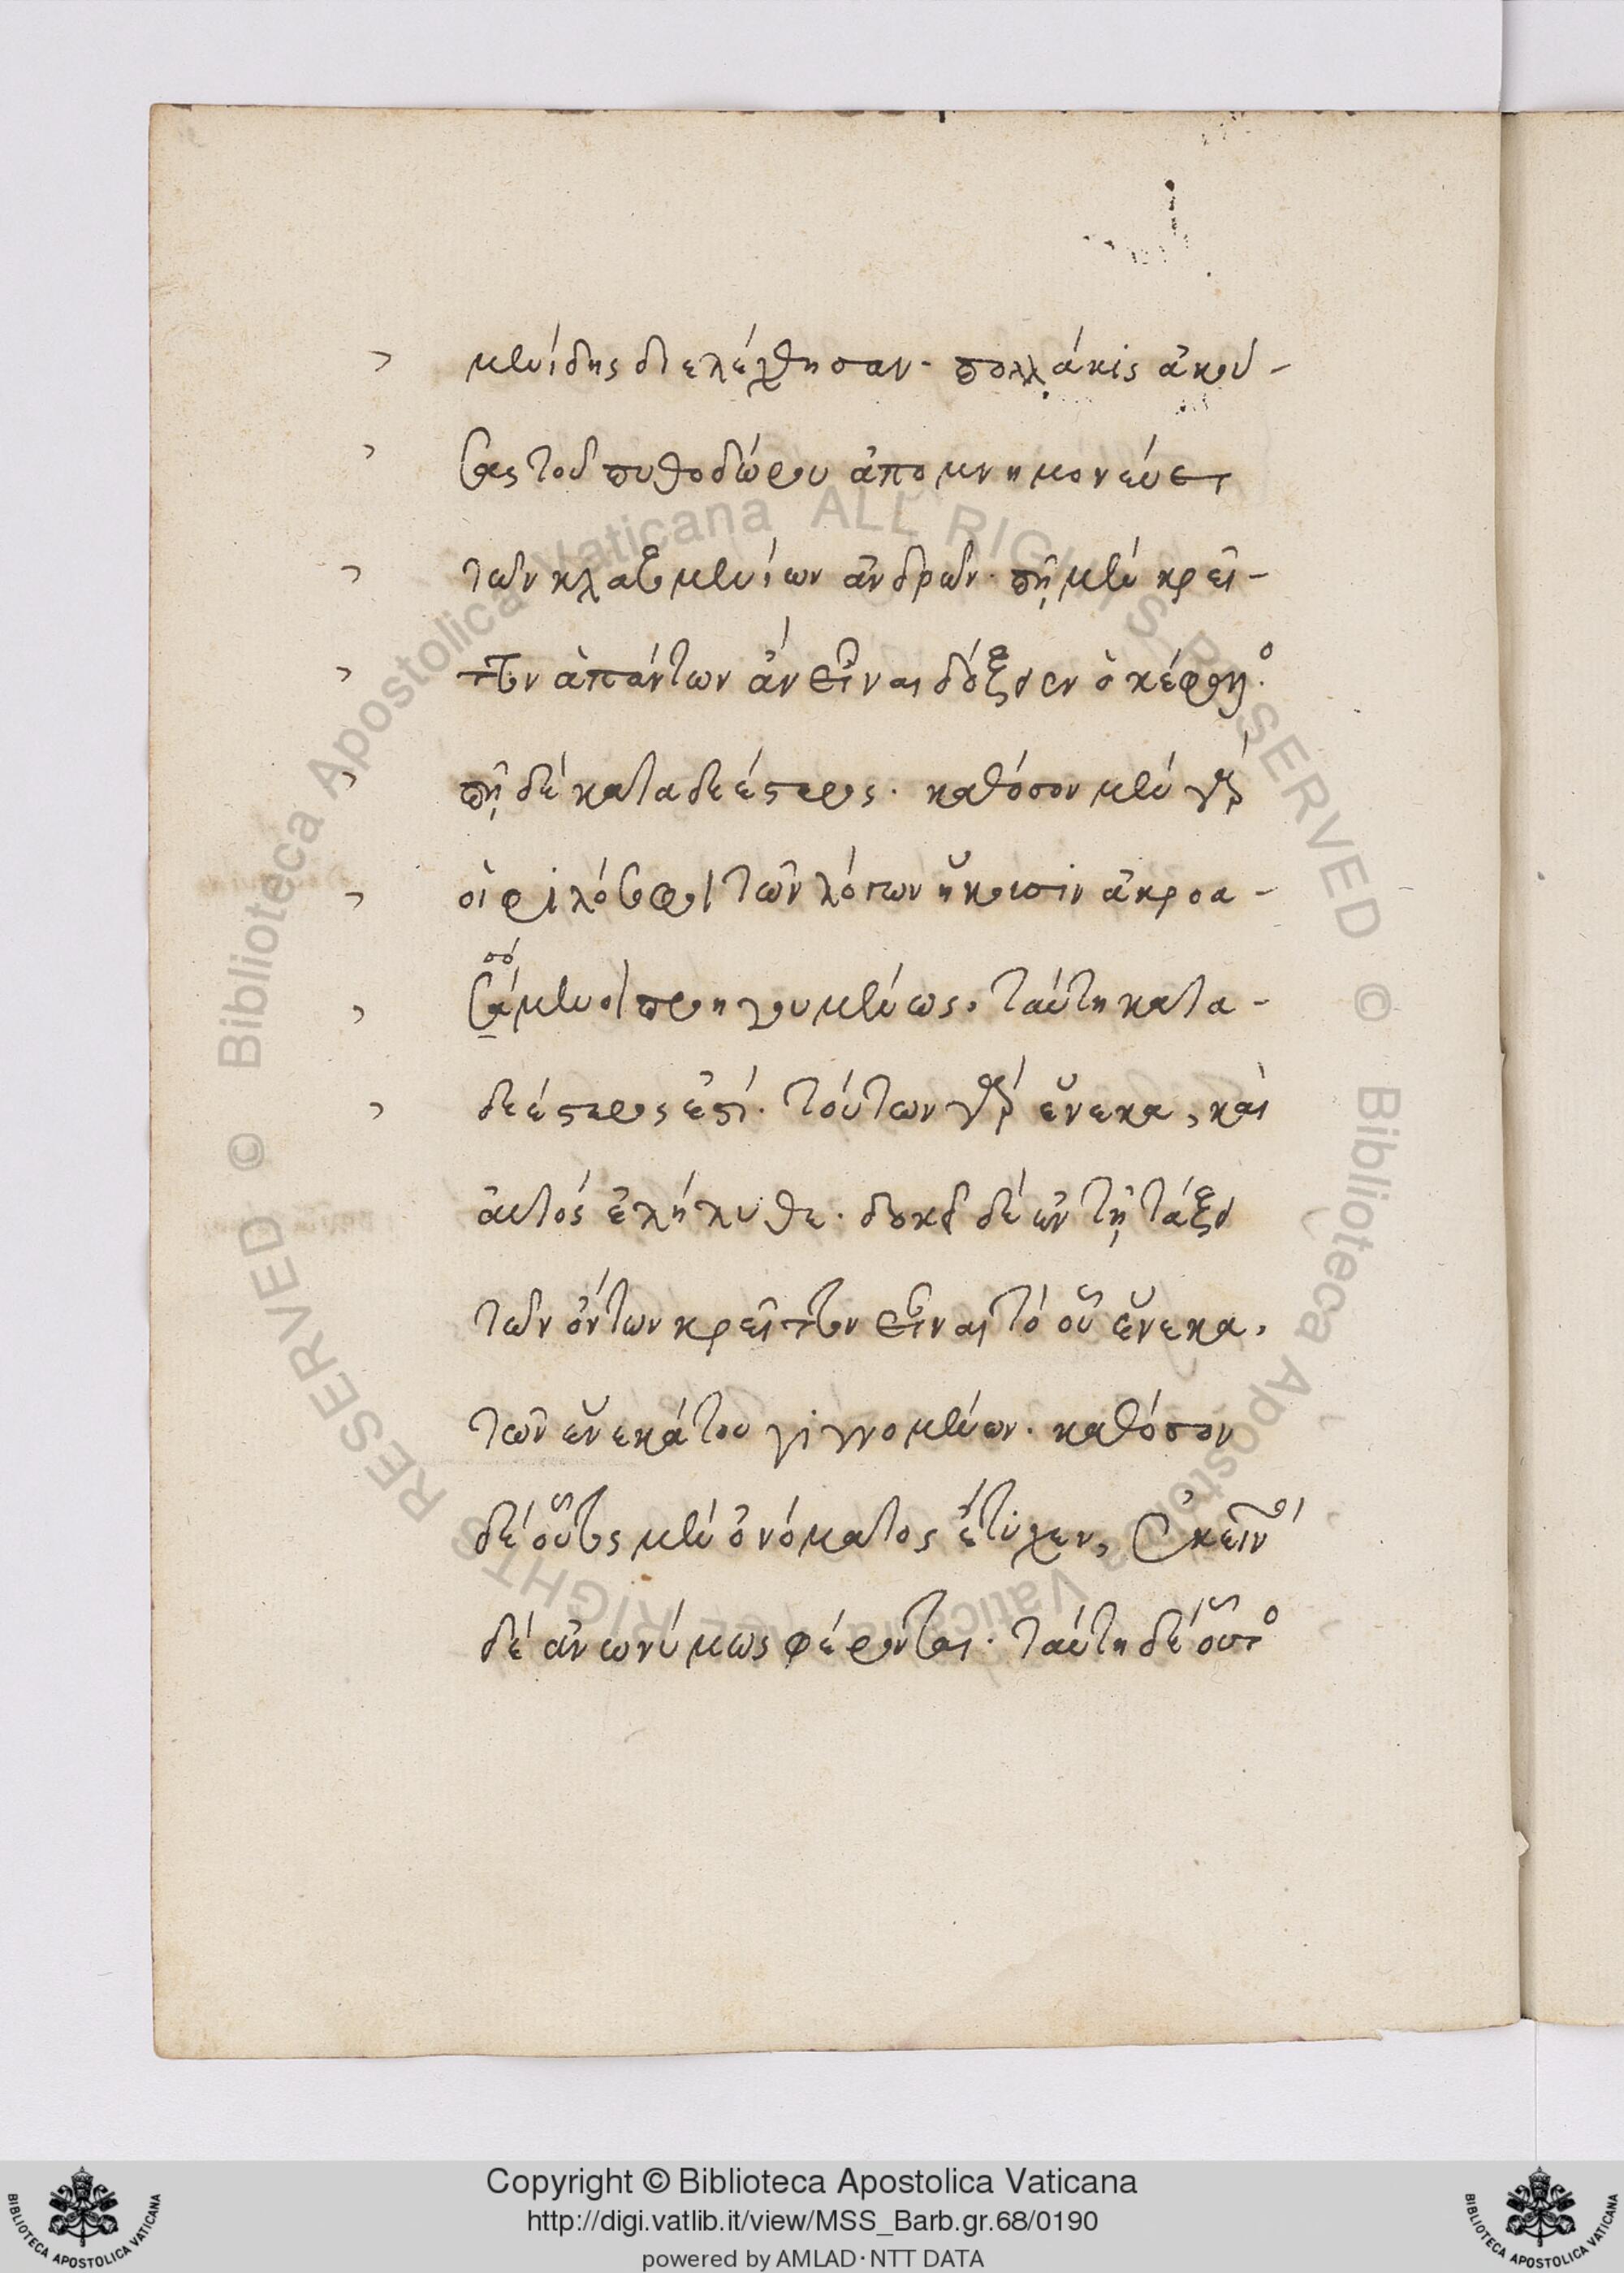 μενίδης διελέχθησαν· πολλάκις ἀκού-
σας τοῦ πυθοδώρου ἀπομνημονεύει
τῶν κλαζομενίων ἀνδρῶν· πῆ μὲν κρεῖ-
ττων ἁπάντων ἂν εἶναι δόξειεν ὁ κέφαλος·
πῆ δὲ καταδεέστερος· καθόσον μὲν γὰρ
οἱ φιλόσοφοι τῶν λόγων ἥκουσιν ἀκροα-
σόμενοι προηγουμένως, ταύτη κατα-
δεέστερος ἐστί· τούτων γὰρ ἕνεκα, καὶ
αὐτὸς ἐλήλυθε· δοκεῖ δὲ ἐν τῆ τάξει
τῶν ὄντων κρεῖττον εἶναι τὸ οὗ ἕνεκα,
τῶν ἕνεκά του γιγνομένων· καθόσον
δὲ οὗτος μὲν ὀνόματος ἔτυχεν, ἐκεῖνοι
δὲ ἀνωνύμως φέρονται· ταύτη δὲ οὗτος
Copyright © Biblioteca Apostolica Vaticana
http://digi.vatlib.it/view/MSS_Barb.gr.68/0190
powered by AMLAD·NTT DATA
BIBLIOTECA APOSTOLICA VATICANA
BIBLIOTECA APOSTOLICA VATICANA
© Biblioteca Apostolica Vaticana ALL RIGHTS RESERVED
© Biblioteca Apostolica Vaticana ALL RIGHTS RESERVED